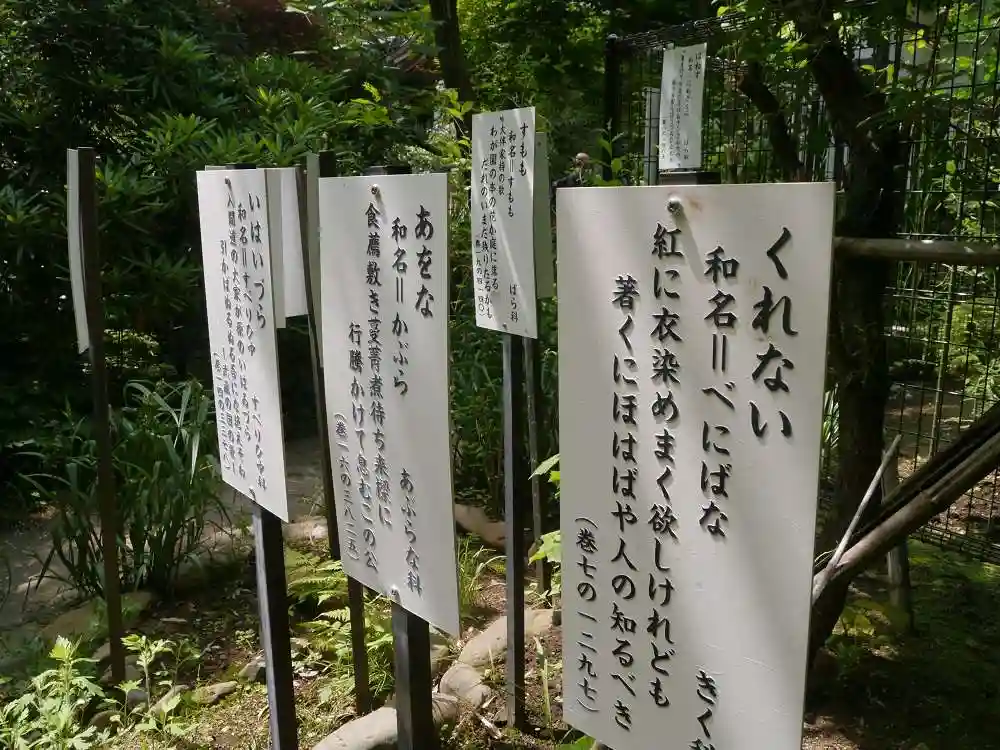 くれない
和名=べにばな　きく科
紅に衣染めまく欲しけれども
著くにほはばや人の知るべき
(巻七の一二九七)
すもも
和名=すもも　ばら科
大伴家持の歌
わが園の李の花か庭に落る
はだれのいまだ残りたるかも
(巻一九の四一四〇)
あをな
和名=かぶら　あぶらな科
食薦敷き蔓菁煮待ち来樑に
行騰かけて息むこの公
(巻一六の三八二五)
いはいづら
和名=すべりひゆ　すべりひゆ科
入間道の大家が原のいはゐづら
引かばぬるぬる吾にな絶えそね